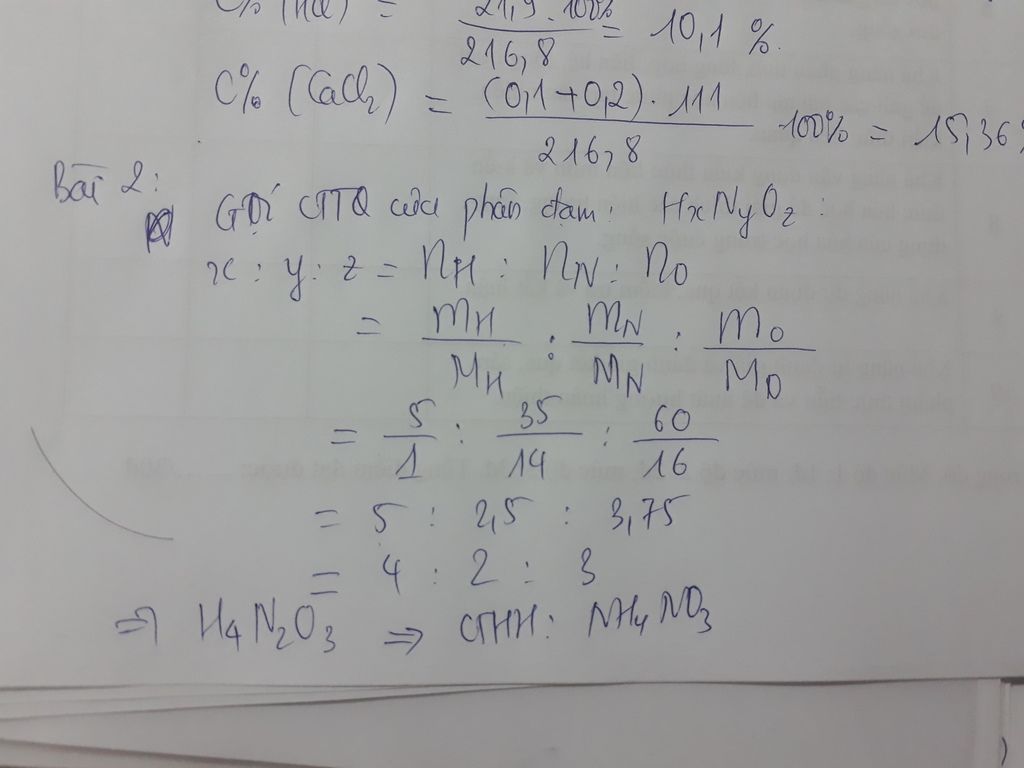 C% (HCl) = 21,9 . 100% / 216,8 = 10,1 %.
C% (CaCl₂) = (0,1+0,2) . 111 / 216,8 100% = 15,36%
Bài 2:
Gọi CTTQ của phân đạm: HxNyOz:
x : y : z = nH : nN : nO
= mH/MH : mN/MN : mO/MO
= 5/1 : 35/14 : 60/16
= 5 : 2,5 : 3,75
= 4 : 2 : 3
⇒ H₄N₂O₃ ⇒ CTHH: NH₄NO₃